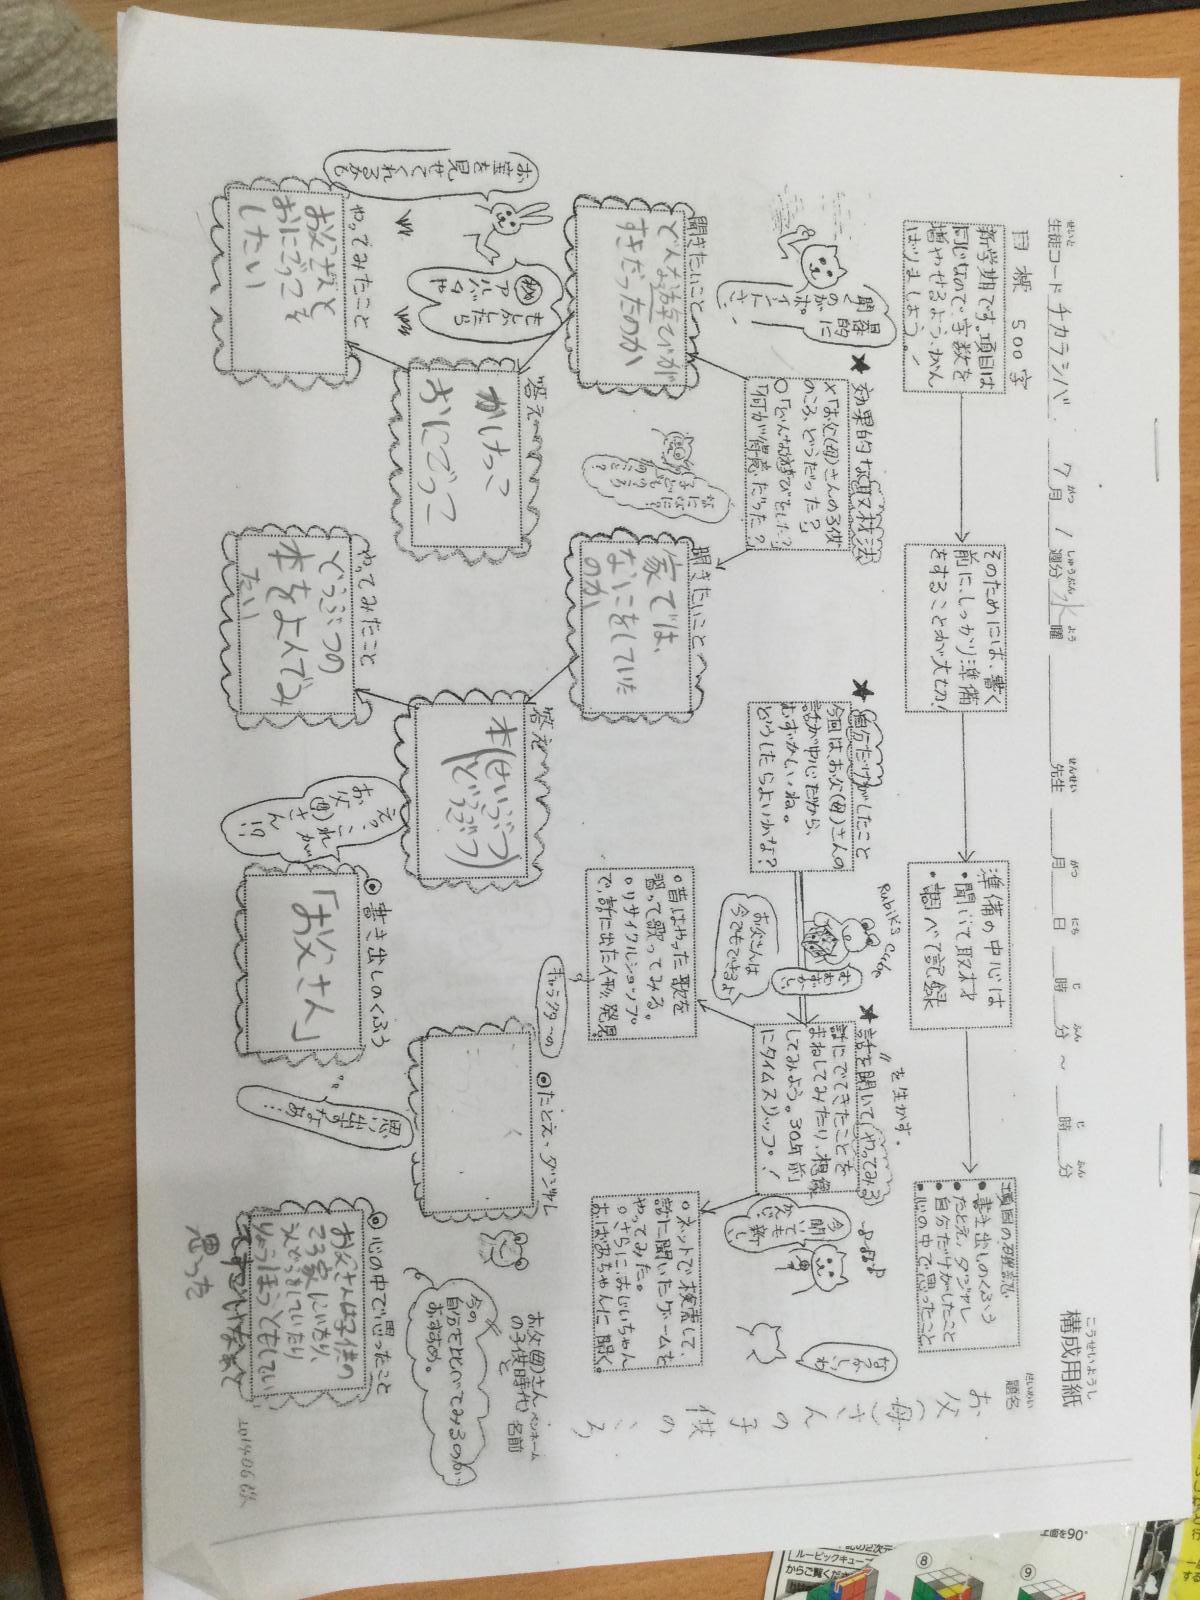 構成用紙
こうせいようし
せいと
生徒コード チカラシバ
7月 1週分 水曜
がつ しゅうぶん よう
先生 月 日 時 分 ～ 時 分
せんせい がつ にち じ ふん じ ふん
だいめい
題名
お父(母)さんの子供のころ
目標 500字
新学期です。項目は
同じなので、字数を
増やせるよう、がん
ばりましょう！
そのためには、書く
前に、しっかり準備
をすることが大切！
準備の中心は
・聞いて取材
・調べて記録
項目の確認
・書き出しのくふう
・たとえ、ダジャレ
・自分だけがしたこと
・心の中で思ったこと
★効果的な取材法
×「お父(母)さんの子供
のころ、どうだった？」
○「どんな遊びをした？」
「何が得意だった？」
★自分だけがしたこと
今回はお父(母)さんの
話が中心だから、
むずかしいね。
どうしたらよいかな？
Rubik's Cube
お父さんは
今でもできるよ
を生かす。
★話を聞いてやってみる
話にでてきたことを
まねしてみたり、想像
してみよう。30年前
にタイムスリップ！
○昔はやった歌を
習って歌ってみる。
○リサイクルショップ
で、話に出た人形発見
キャラクターの
○ネットで検索して、
話に聞いたゲームを
やってみた。
○さらに、おじいちゃん
おばあちゃんに聞く。
聞きたいこと
どんな遊びが
すきだったのか
答え
かけっこ
おにごっこ
やってみたこと
お父さんと
おにごっこを
したい
お宝を見せてくれるかも
もしかしたら
㊙アルバムや
聞きたいこと
家では、
なにをしていた
のか
答え
本(せいぶつ
どうぶつ)
やってみたこと
どうぶつの
本をよんでみ
たい
◎書き出しのくふう
「お父さん」
えっ、これが
お父(母)さん!?
思い出すなあ…
◎たとえ・ダジャレ
◎心の中で思ったこと
お父さんは子供の
ころ家にいたり、
そとで
りょうほうともしてい
思った
お父(母)さん
の子供時代
と
ペンネーム
名前
今の
自分と比べてみるのが
おすすめ。
上面を90°
ルービックキューブ
からご覧くださ
⑧
⑨